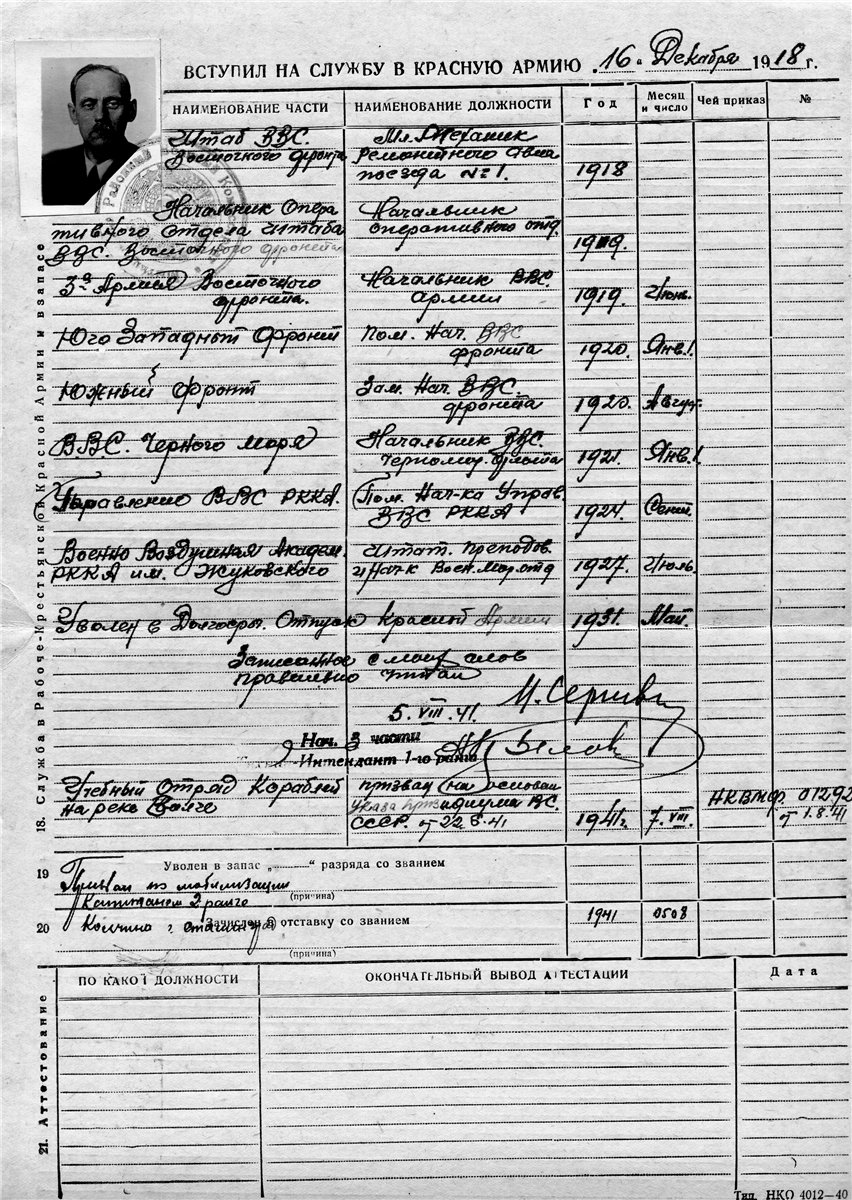 ВСТУПИЛ НА СЛУЖБУ В КРАСНУЮ АРМИЮ 16 Декабря 1918 г.
НАИМЕНОВАНИЕ ЧАСТИ НАИМЕНОВАНИЕ ДОЛЖНОСТИ Год Месяц и число Чей приказ №
Штаб ВВС. Мл. Механик
Восточного фронта Ремонтного Авиа
поезда №1. 1918
Начальник Опера Начальник
тивного отдела штаба оперативного отд.
ВВС. Восточного фронта 1919.
3я Армия Восточного Начальник ВВС.
фронта. армии 1919. Июнь.
Юго Западный Фронт Пом. Нач. ВВС
фронта 1920. Янв.1.
Южный фронт Зам. Нач. ВВС.
фронта 1920. Август.
ВВС. Черного моря Начальник ВВС.
Черномор. флота 1921. Янв.1.
Управление ВВС РККА. Пом. Нач-ка Управ.
ВВС РККА 1924. Сент.
Военно Воздушная Академ. Штат. преподов.
РККА им. Жуковского и Нач-к Воен. Мор. отд 1927. Июль.
Уволен в Долгоср. Отпуск Красной Армии 1931. Май.
Записанное с моих слов
правильно читал
5. VIII. 41. М. Сергеев
Нач. 3 части
Интендант 1-го ранга Белов
Учебный Отряд Кораблей призван на основан
на реке Волге указа президиума ВС. НКВМФ. 01292
СССР. от 22.6.41 1941г. 7. VIII. от 1.8.41
19 Уволен в запас „ “ разряда со званием
Призван по мобилизации
Капитаном 2 ранга (причина)
20 Зачислен в отставку со званием 1941 0508
(причина)
18. Служба в Рабоче-Крестьянской Красной Армии и в запасе
21. Аттестование
ПО КАКОЙ ДОЛЖНОСТИ ОКОНЧАТЕЛЬНЫЙ ВЫВОД АТТЕСТАЦИИ Дата
Тип. НКО 4012—40